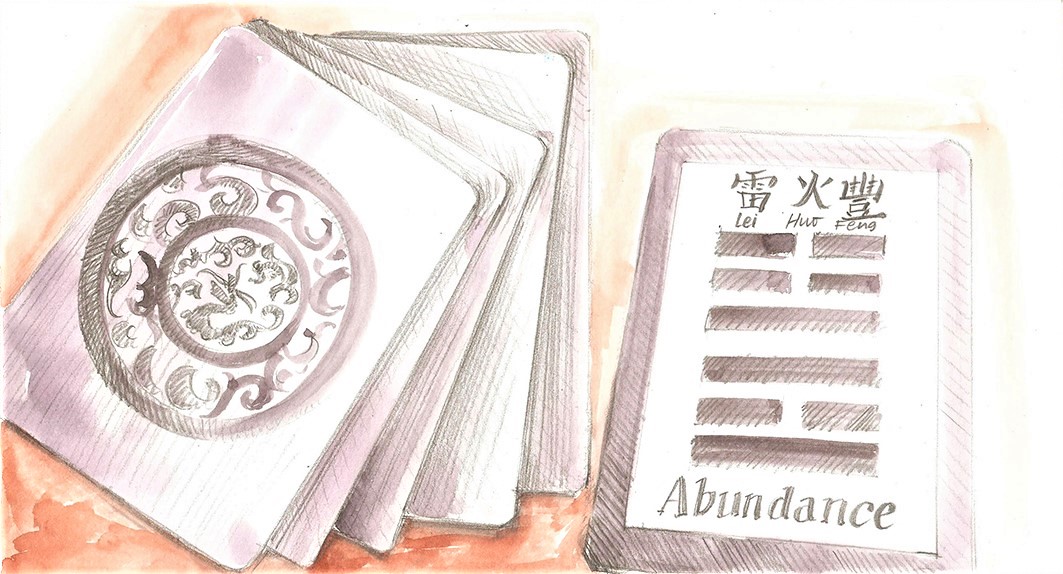 雷 火 豐
Lei Huo Feng
Abundance